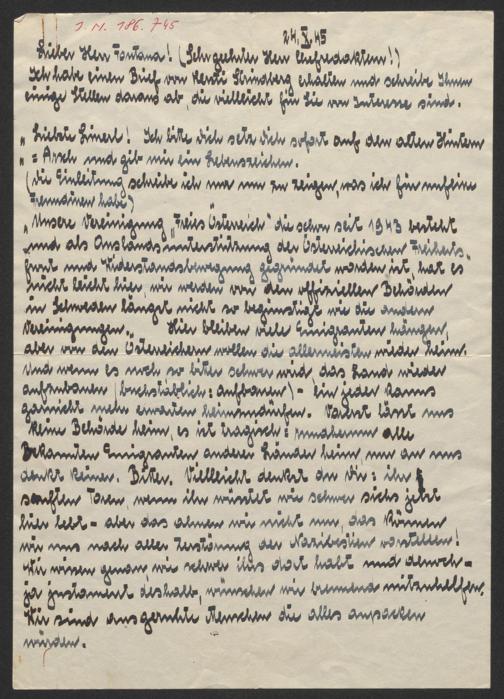 I.N. 186.745
24.X.45
Lieber Herr Fontana! (Sehr geehrter Herr Chefredakteur!)
Ich habe einen Brief von Kersti Strindberg erhalten und schreibe Ihnen
einige Stellen daraus ab, die vielleicht für Sie von Interesse sind.
„Liebste Linerl! Ich bitte dich setz dich sofort auf den alten Hintern
„= Arsch und gib mir ein Lebenszeichen.
(die Einleitung schreibe ich nur um zu zeigen, was ich für
Freundinnen habe)
„Unsere Vereinigung „Freies Österreich" die schon seit 1943 besteht
„und als Auslandsunterstützung der Österreichischen Freiheits-
front und Widerstandsbewegung gegründet worden ist, hat es
nicht leicht hier, wir werden von den offiziellen Behörden
in Schweden längst nicht so begünstigt wie die andern
Vereinigungen. Hier bleiben viele Emigranten hängen,
aber von den Österreichern wollen die allermeisten wieder heim.
Und wenn es noch so bitter schwer wird, das Land wieder
aufzubauen (buchstäblich: aufbauen) – ein jeder kanns
garnicht mehr erwarten heimzudürfen. Vorerst lässt uns
keine Behörde heim, es ist tragisch: alle
Bekannten Emigranten anderer Länder heim nur an uns
denkt keiner. Bitter. Vielleicht denkst du dir: ihr
sanften Toren, wenn ihr wüsstet wie schwer sichs jetzt
hier lebt – aber das ahnen wir nicht nur, das können
wir uns nach aller Zerstörung der Nazibestien vorstellen!
Wir wissen genau, wie schwer ihrs dort habt und dennoch –
ja justament deshalb, wünschen wir brennend mitzuhelfen.
Wir sind ausgeruhte Menschen die alles anpacken
würden.